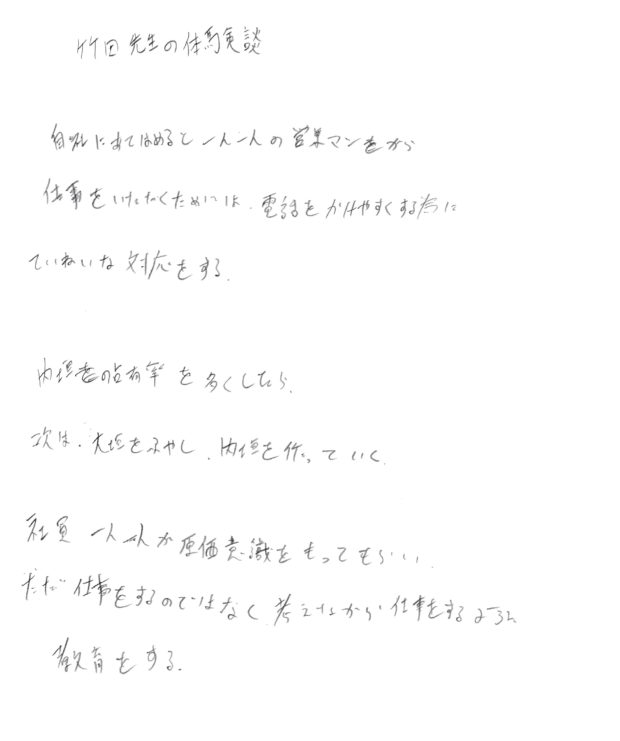 竹田先生の体験談
自社にあてはめると一人一人の営業マンをから
仕事をいただくためには、電話をかけやすくする為に
ていねいな対応をする。
内垣の占有率を多くしたら、
次は、大垣をふやし、内垣を作っていく。
社員一人一人が原価意識をもってもらい、
ただ仕事をするのではなく、考えながら仕事をするように
教育をする。